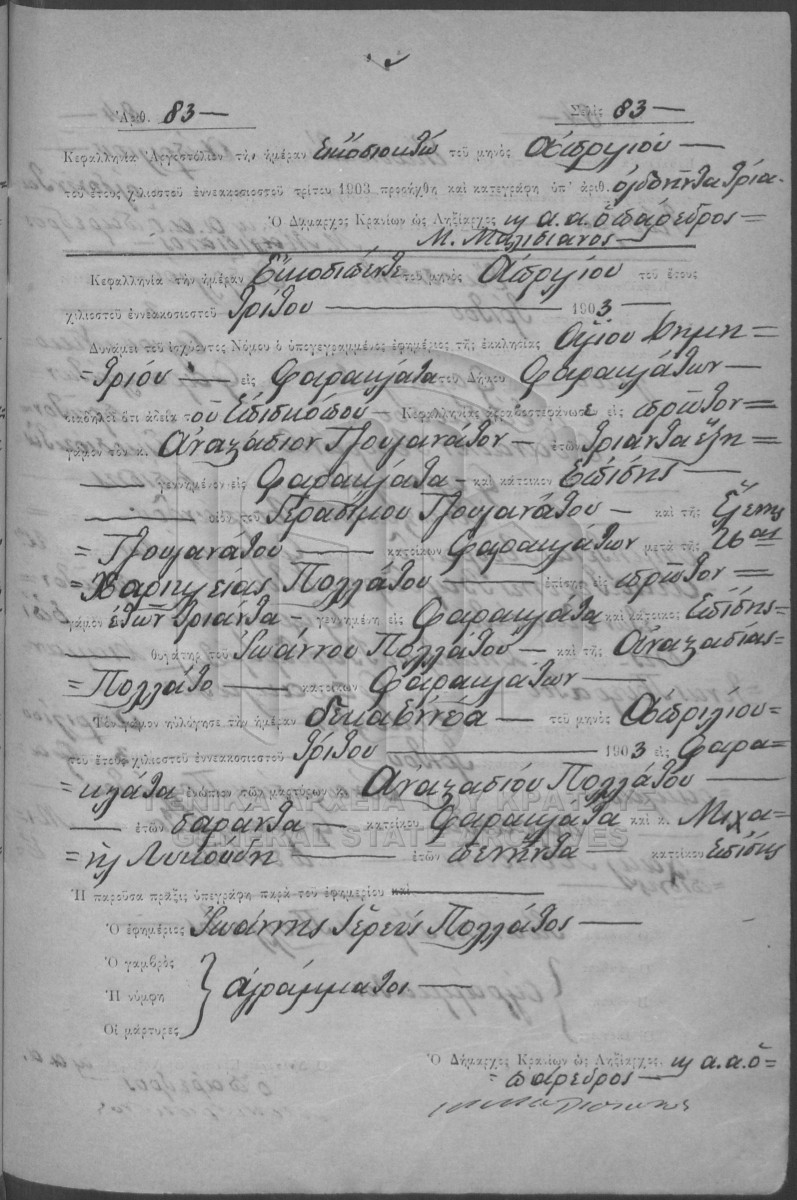 Ἀριθ. 83 — Σελὶς 83 —
Κεφαλληνία Ἀργοστόλιον τὴν ἡμέραν εἰκοσιοκτὼ τοῦ μηνὸς Ἀπριλίου —
τοῦ ἔτους χιλιοστοῦ ἐννεακοσιοστοῦ τρίτου 1903 προσήχθη καὶ κατεγράφη ὑπ' ἀριθ. ὀγδοῆντα τρία.
Ὁ Δήμαρχος Κρανίων ὡς Ληξίαρχος κ α.α. ὁ πάρεδρος =
Μ.
Κεφαλληνία τὴν ἡμέραν Εἴκοσι πέντε τοῦ μηνὸς Ἀπριλίου τοῦ ἔτους
χιλιοστοῦ ἐννεακοσιοστοῦ τρίτου — 1903 —
Δυνάμει τοῦ ἰσχύοντος Νόμου ὁ ὑπογεγραμμένος ἐφημέριος τῆς ἐκκλησίας Ἁγίου Δημη=
=τρίου — εἰς Φαρακλάτα τοῦ Δήμου Φαρακλάτων —
διαδηλοῖ ὅτι ἀδείᾳ τοῦ Ἐπισκόπου — Κεφαλληνίας ἱεροευλόγησε εἰς πρῶτον =
γάμον τὸν κ. Ἀναστάσιον Τζουγανάτον — ἐτῶν τριάντα ἕξη =
— γεννημένον εἰς Φαρακλάτα — καὶ κάτοικον Ἐπίσης —
— υἱὸν τοῦ Γερασίμου Τζουγανάτου — καὶ τῆς Ἑλένης
= Τζουγανάτου — κατοίκων Φαρακλάτων μετὰ τῆς
= Χαρικλείας Πολλάτου — ἐπίσης εἰς πρῶτον =
γάμον ἐτῶν τριάντα — γεννημένη εἰς Φαρακλάτα καὶ κάτοικος Ἐπίσης =
— θυγάτηρ τοῦ Ἰωάννου Πολλάτου — καὶ τῆς Ἀναστασίας =
= Πολλάτο — κατοίκων Φαρακλάτων —
Τὸν γάμον ηὐλόγησε τὴν ἡμέραν δεκαεννέα — τοῦ μηνὸς Ἀπριλίου =
τοῦ ἔτους χιλιοστοῦ ἐννεακοσιοστοῦ τρίτου — 1903 εἰς Φαρα=
=κλάτα ἐνώπιον τῶν μαρτύρων κ. Ἀναστασίου Πολλάτου —
— ἐτῶν σαράντα — κατοίκου Φαρακλάτα καὶ κ. Μιχα=
=ὴλ Λυκούδη — ἐτῶν πενῆντα — κατοίκου Ἐπίσης
Ἡ παροῦσα πρᾶξις ὑπεγράφη παρὰ τοῦ ἐφημερίου καὶ —
Ὁ ἐφημέριος Ἰωάννης Ἱερεὺς Πολλάτος —
Ὁ γαμβρὸς
Ἡ νύμφη ἀγράμματοι —
Οἱ μάρτυρες
Ὁ Δήμαρχος Κρανίων ὡς Ληξίαρχος. κ α.α. ὁ =
= πάρεδρος —
ΓΕΝΙΚΑ ΑΡΧΕΙΑ ΤΟΥ ΚΡΑΤΟΥΣ
GENERAL STATE ARCHIVES